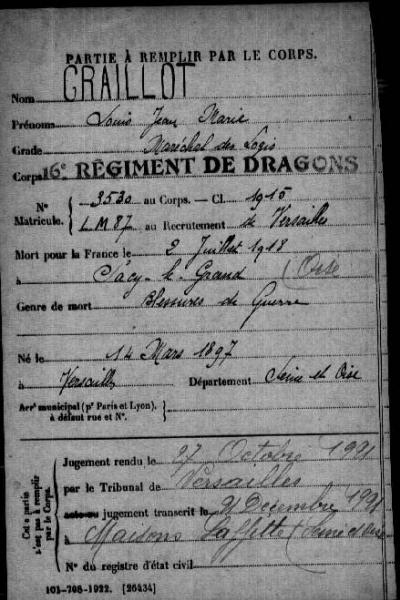 PARTIE À REMPLIR PAR LE CORPS.
Nom GRAILLOT
Prénoms Louis Jean Marie
Grade Maréchal des Logis
Corps 16e RÉGIMENT DE DRAGONS
N° 3530 au Corps. — Cl. 1915
Matricule. L.M 87 au Recrutement de Versailles
Mort pour la France le 2 Juillet 1918
à Sacy-le-Grand (Oise
Genre de mort Blessures de Guerre
Né le 14 Mars 1897
à Versailles Département Seine et Oise
Arrt municipal (pr Paris et Lyon),
à défaut rue et N°.
Cette partie
n'est pas à remplir
par le Corps.
Jugement rendu le 27 Octobre 1921
par le Tribunal de Versailles
acte ou jugement transcrit le 21 Décembre 1921
à Maisons Laffitte (Seine et Oise
N° du registre d'état civil
101-708-1922. [26434]